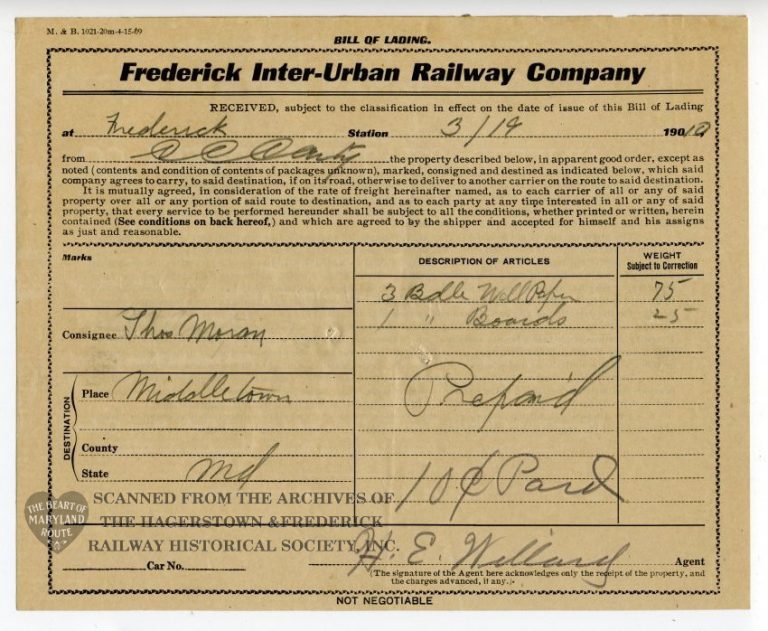 M. & B. 1021-20m-4-15-09
BILL OF LADING.
Frederick Inter-Urban Railway Company
RECEIVED, subject to the classification in effect on the date of issue of this Bill of Lading
at Frederick Station 3/19 1910
from C C Carty the property described below, in apparent good order, except as
noted (contents and condition of contents of packages unknown), marked, consigned and destined as indicated below, which said
company agrees to carry, to said destination, if on its road, otherwise to deliver to another carrier on the route to said destination.
It is mutually agreed, in consideration of the rate of freight hereinafter named, as to each carrier of all or any of said
property over all or any portion of said route to destination, and as to each party at any time interested in all or any of said
property, that every service to be performed hereunder shall be subject to all the conditions, whether printed or written, herein
contained (See conditions on back hereof,) and which are agreed to by the shipper and accepted for himself and his assigns
as just and reasonable.
Marks
DESCRIPTION OF ARTICLES
WEIGHT
Subject to Correction
3 Bdle Wall Paper 75
1 " Boards 25
Consignee Thos Moran
DESTINATION
Place Middletown
Prepaid
County
State Md
10¢ Paid
THE HEART OF
MARYLAND
ROUTE
SCANNED FROM THE ARCHIVES OF
THE HAGERSTOWN & FREDERICK
RAILWAY HISTORICAL SOCIETY, INC.
Car No.
H. E. Willard Agent
(The signature of the Agent here acknowledges only the receipt of the property, and
the charges advanced, if any.)
NOT NEGOTIABLE